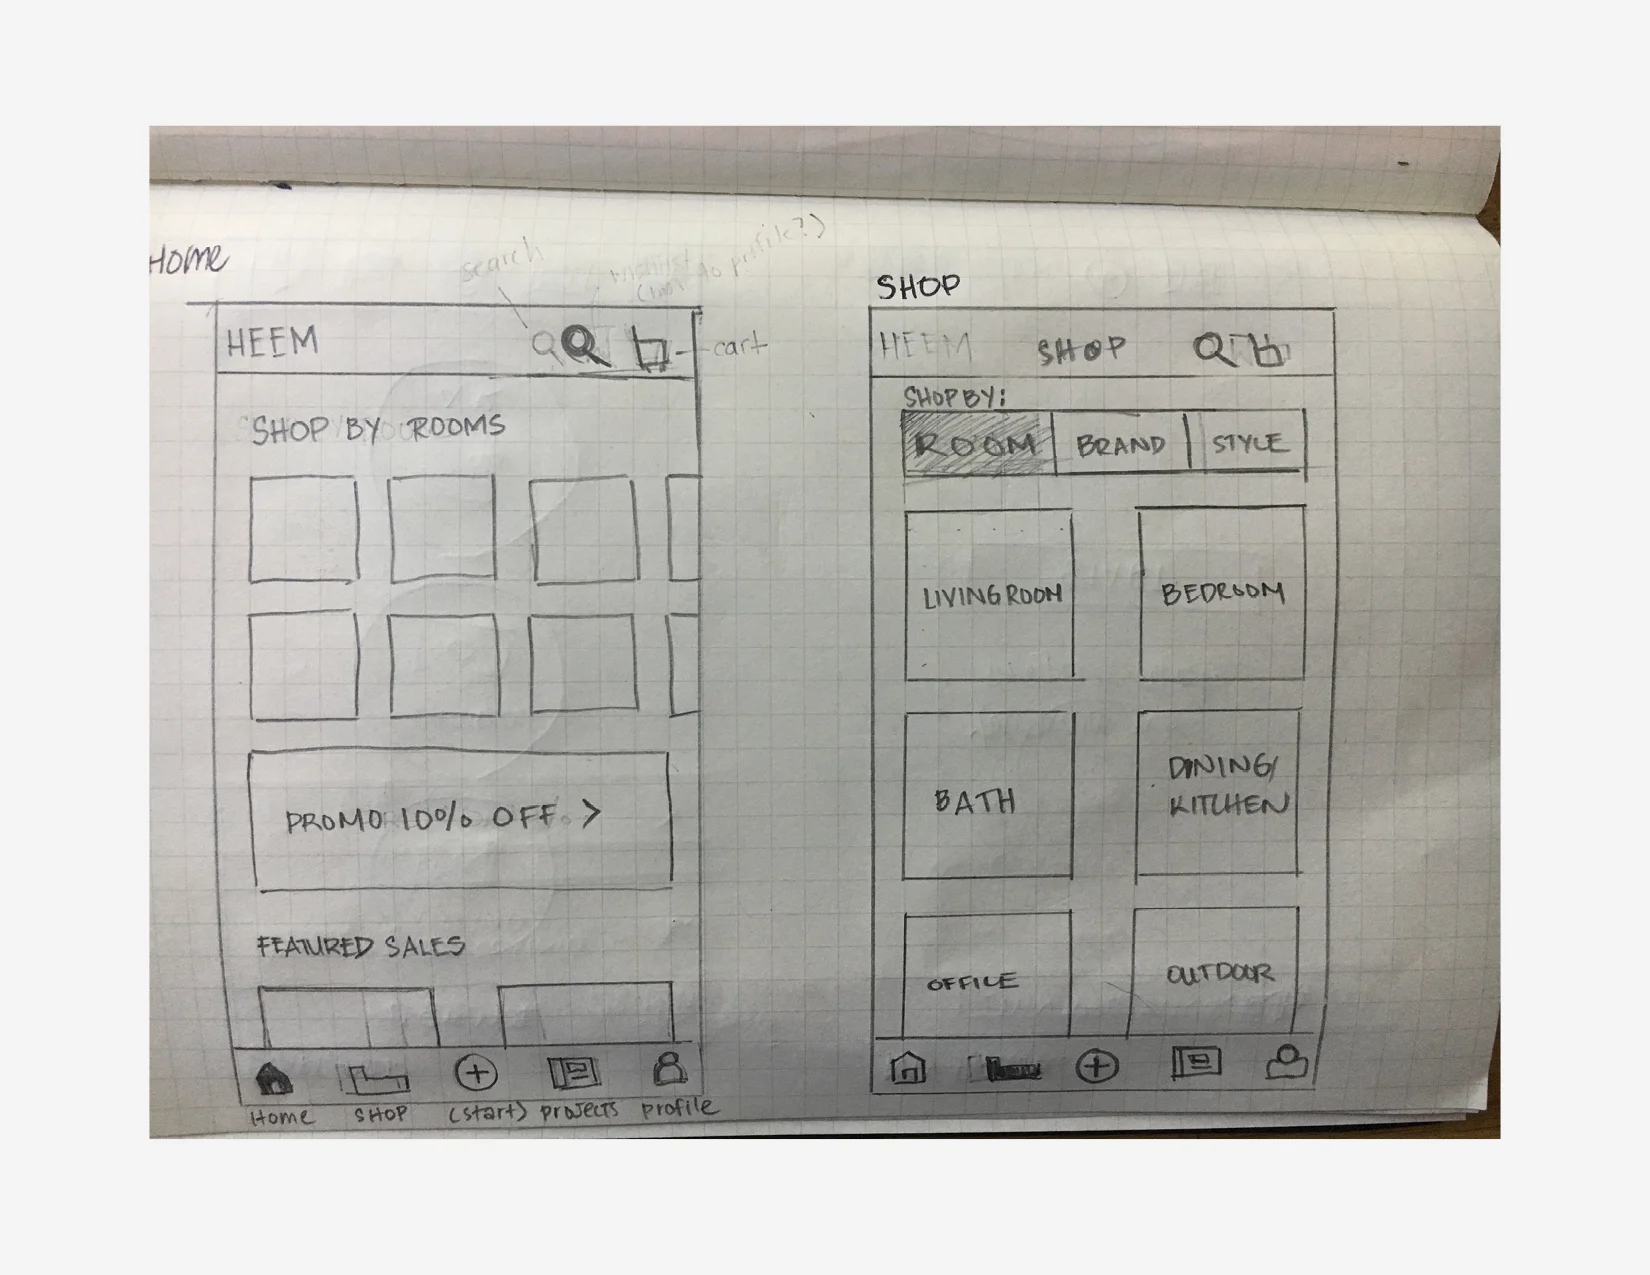 Home
search
(not to profile?)
HEEM
cart
SHOP BY ROOMS
PROMO 10% OFF >
FEATURED SALES
Home
SHOP
(start)
projects
profile
SHOP
HEEM
SHOP
SHOP BY:
ROOM
BRAND
STYLE
LIVING ROOM
BEDROOM
BATH
DINING/
KITCHEN
OFFICE
OUTDOOR